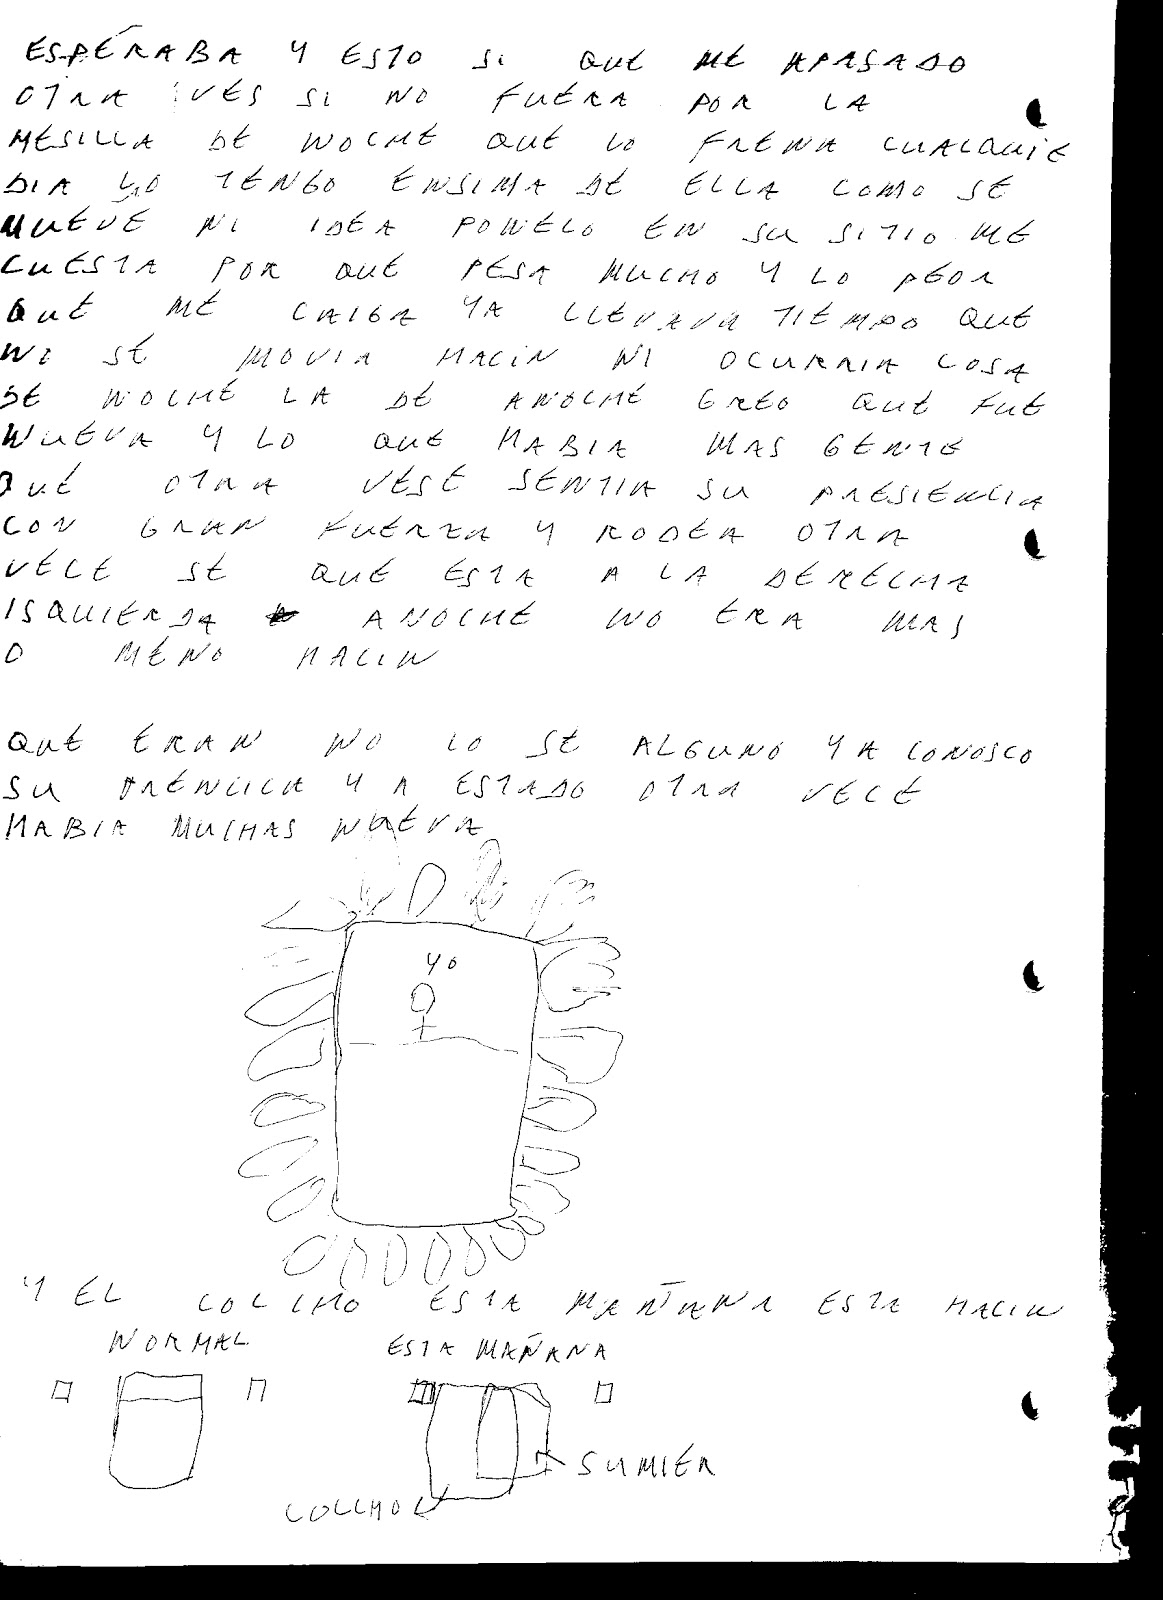 ESPÉRABA Y ESTO SI QUE ME APASADO
OTRA VES SI NO FUERA POR LA
MESILLA DE NOCHE QUE LO FRENA CUALQUIE
DIA LO TENGO ENSIMA DE ELLA COMO SE
MUEVE NI IDEA PONELO EN SU SITIO ME
CUESTA POR QUE PESA MUCHO Y LO PEOR
QUE ME CAIGA YA LLEVAVA TIEMPO QUE
NI SE MOVIA HACIN NI OCURRIA COSA
DE NOCHE LA DE ANOCHE CREO QUE FUE
NUEVA Y LO QUE HABIA MAS GENTE
QUE OTRA VESE SENTIA SU PRESIENCIA
CON GRAN FUERZA Y RODEA OTRA
VECE SE QUE ESTA A LA DERECHA
ISQUIERDA ANOCHE NO ERA MAS
O MENO HACIN
QUE ERAN NO LO SE ALGUNO YA CONOSCO
SU Y A ESTADO OTRA VECE
HABIA MUCHAS NUEVA
YO
Y EL COLCHO ESTA MAÑANA ESTA HACIN
NORMAL ESTA MAÑANA
SUMIER
COLCHO